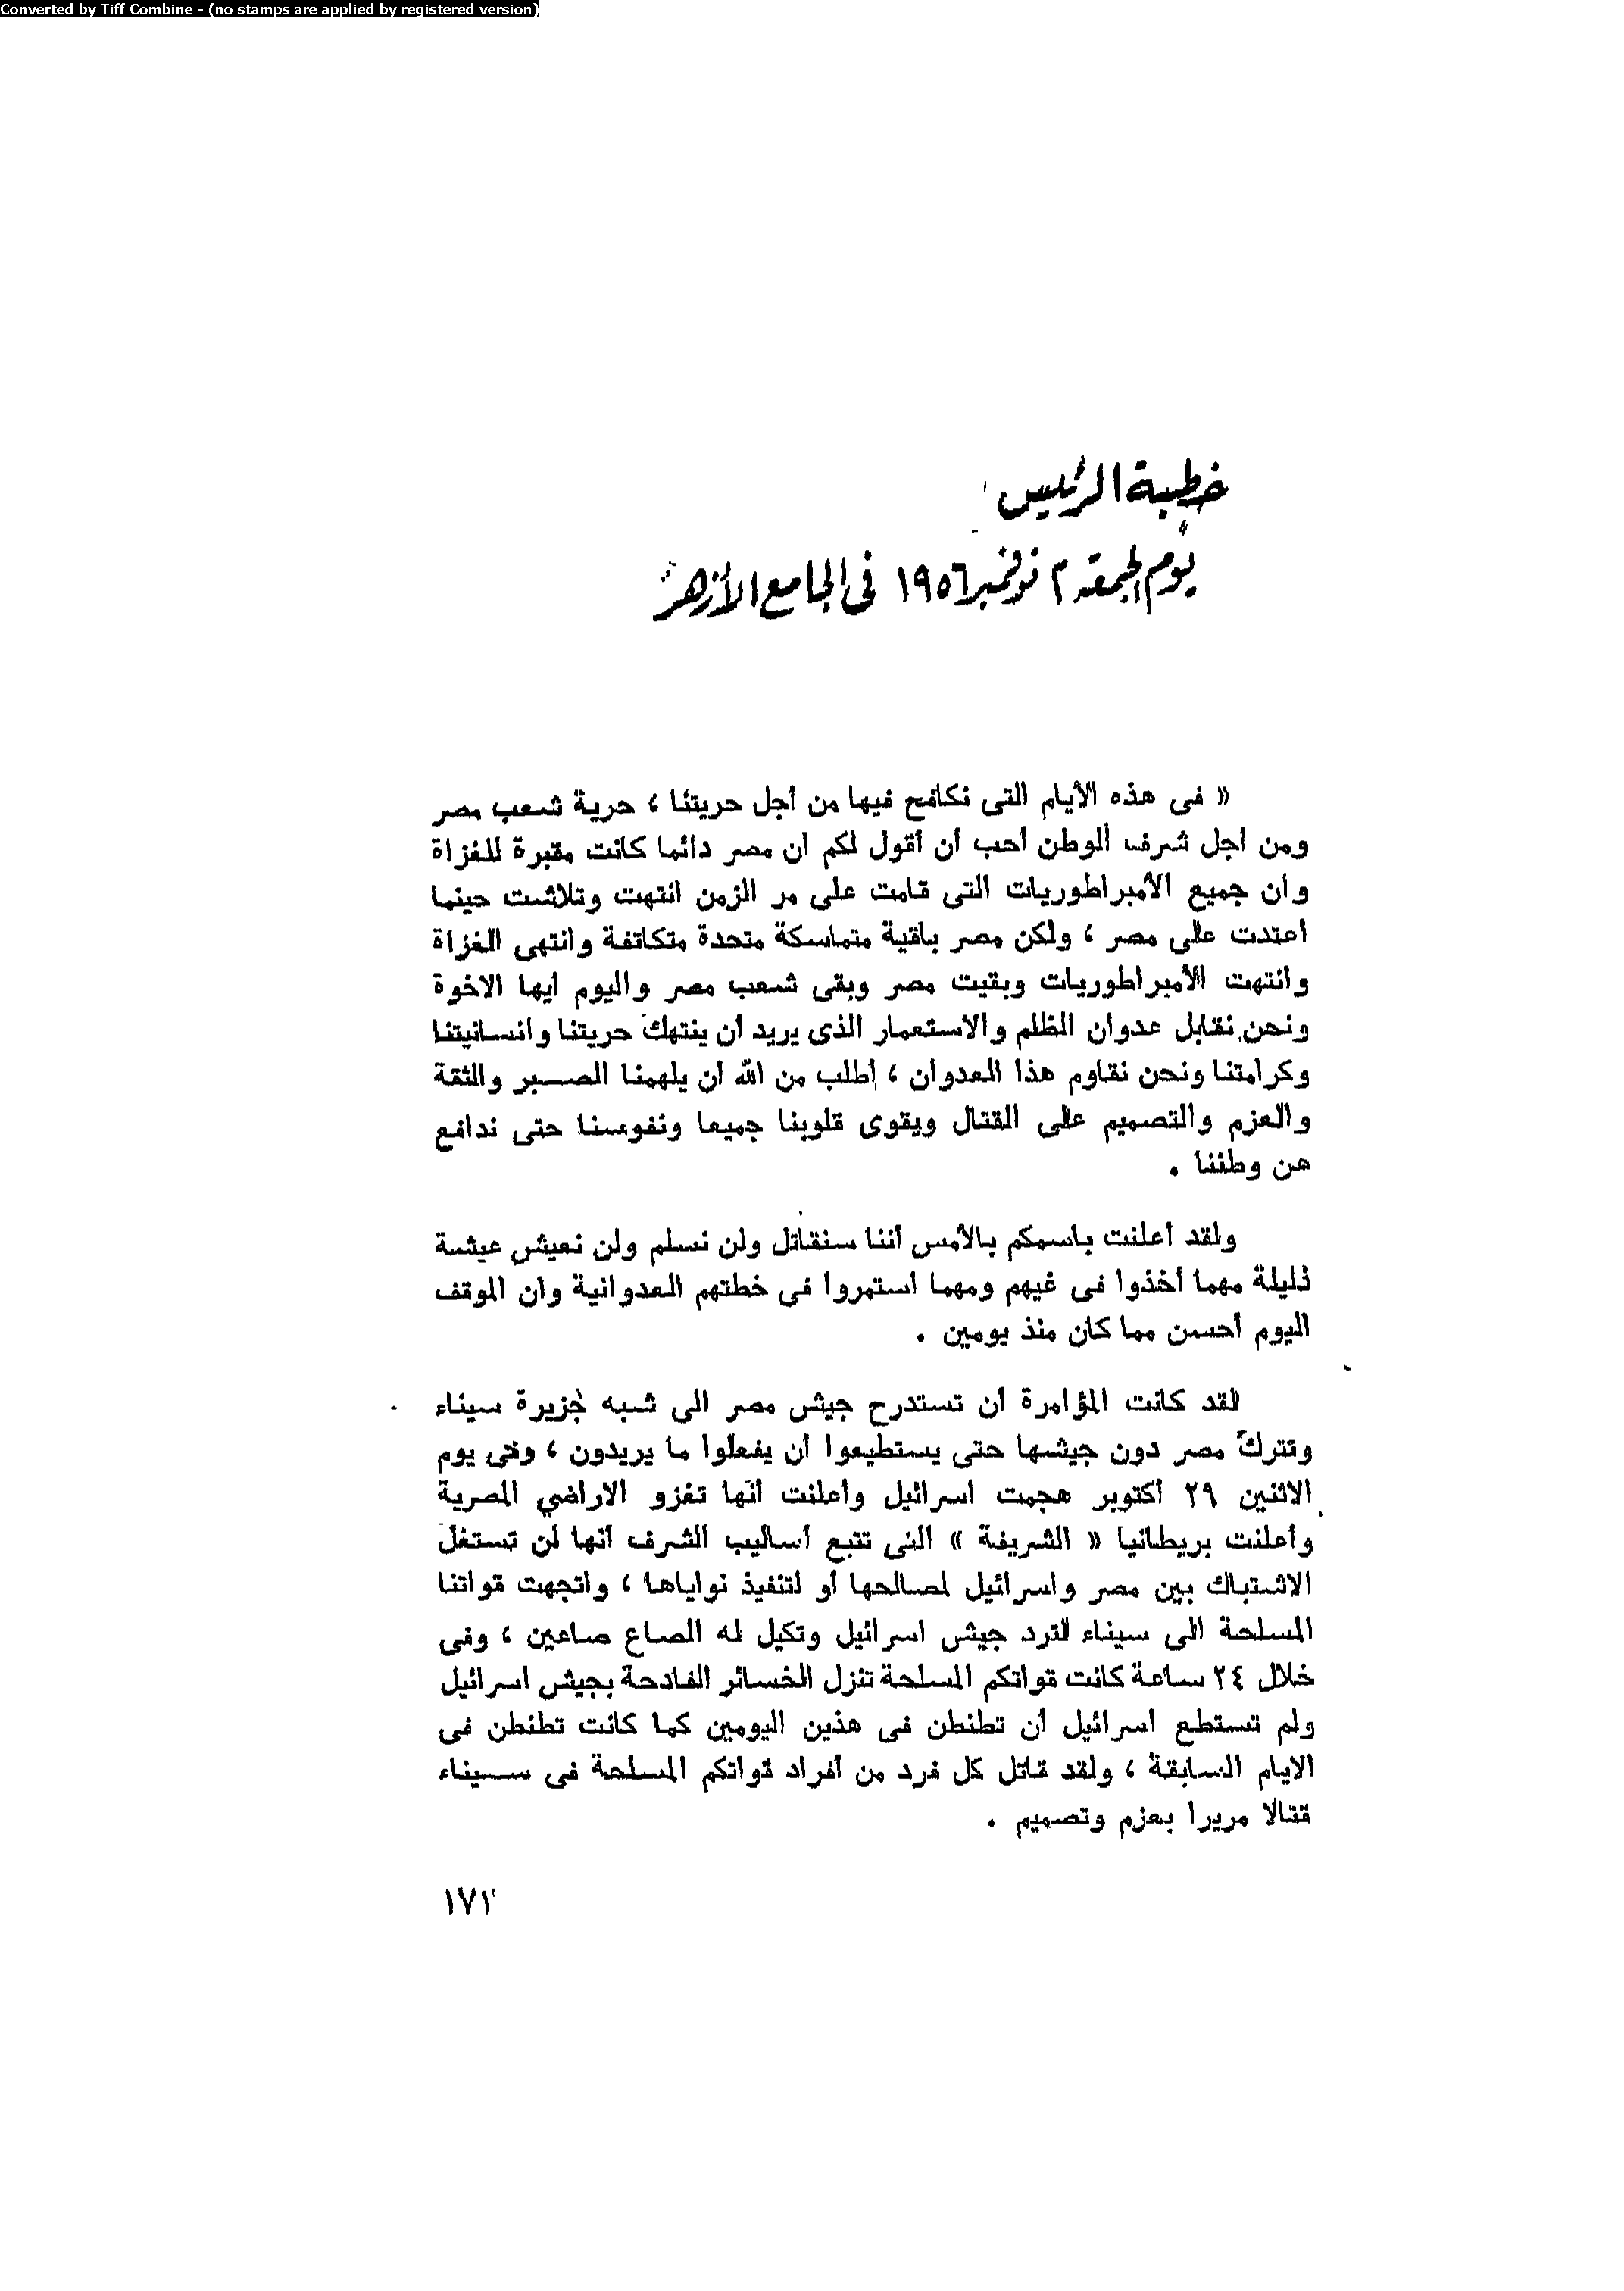 Converted by Tiff Combine - (no stamps are applied by registered version)
خطبة الرئيس
يوم الجمعة ٢ نوفمبر ١٩٥٦ فى الجامع الأزهر
« فى هذه الأيام التى نكافح فيها من أجل حريتنا ، حرية شعب مصر
ومن أجل شرف الوطن أحب أن أقول لكم أن مصر دائما كانت مقبرة للغزاة
وأن جميع الأمبراطوريات التى قامت على مر الزمن انتهت وتلاشت حينما
اعتدت على مصر ، ولكن مصر باقية متماسكة متحدة متكاتفة وانتهى الغزاة
وانتهت الأمبراطوريات وبقيت مصر وبقى شعب مصر واليوم أيها الاخوة
ونحن نقابل عدوان الظلم والاستعمار الذى يريد أن ينتهك حريتنا وانسانيتنا
وكرامتنا ونحن نقاوم هذا العدوان ، أطلب من الله أن يلهمنا الصبر والثقة
والعزم والتصميم على القتال ويقوى قلوبنا جميعا ونفوسنا حتى ندافع
عن وطننا .
ولقد أعلنت باسمكم بالأمس أننا سنقاتل ولن نسلم ولن نعيش عيشة
ذليلة مهما أخذوا فى غيهم ومهما استمروا فى خطتهم العدوانية وأن الموقف
اليوم أحسن مما كان منذ يومين .
لقد كانت المؤامرة أن تستدرج جيش مصر الى شبه جزيرة سيناء
وتترك مصر دون جيشها حتى يستطيعوا أن يفعلوا ما يريدون ، وفى يوم
الاثنين ٢٩ أكتوبر هجمت اسرائيل وأعلنت أنها تغزو الاراضي المصرية
وأعلنت بريطانيا « الشريفة » التى تتبع أساليب الشرف أنها لن تستغل
الاشتباك بين مصر واسرائيل لصالحها أو لتنفيذ نواياها ، واتجهت قواتنا
المسلحة الى سيناء لترد جيش اسرائيل وتكيل له الصاع صاعين ، وفى
خلال ٢٤ ساعة كانت قواتكم المسلحة تنزل الخسائر الفادحة بجيش اسرائيل
ولم تستطع اسرائيل أن تطنطن فى هذين اليومين كما كانت تطنطن فى
الايام السابقة ، ولقد قاتل كل فرد من أفراد قواتكم المسلحة فى سيناء
قتالا مريرا بعزم وتصميم .